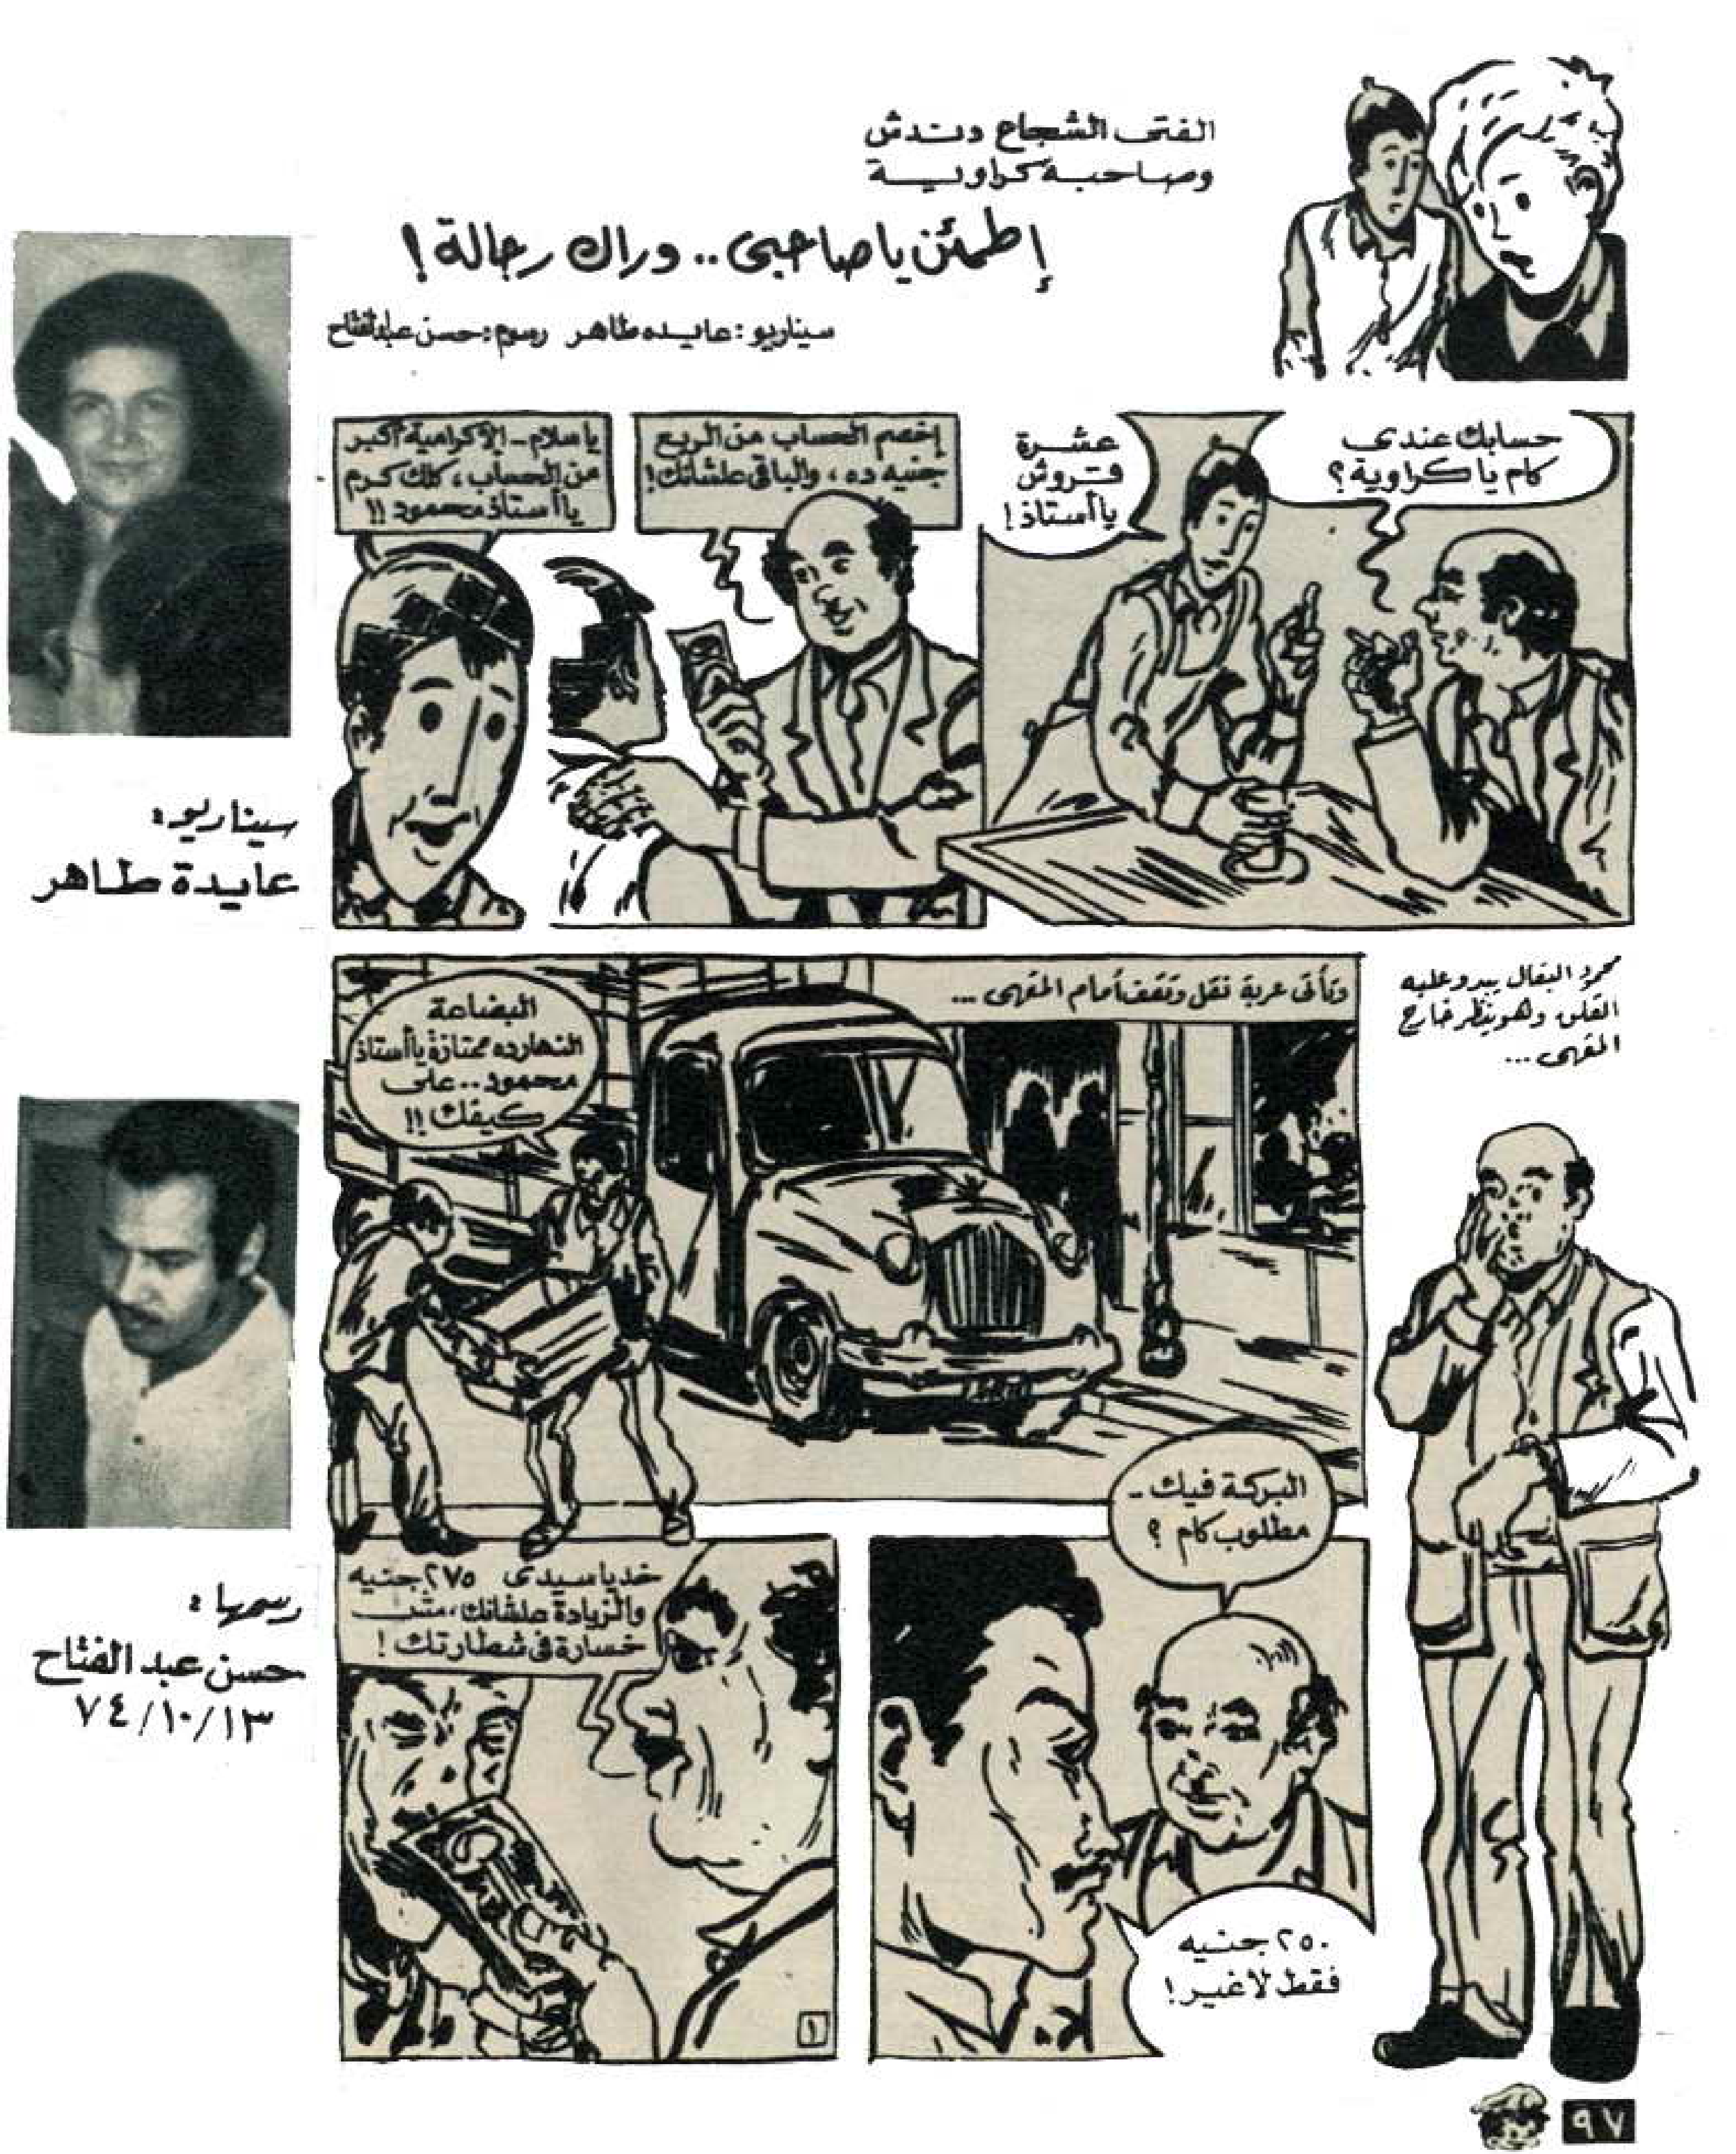 الفتى الشجاع دندش
وصاحبه كراوية
إطمئن يا صاحبى .. وراك رجالة !
سيناريو : عايده طاهر رسوم : حسن عبد الفتاح
حسابك عندي
كام يا كراوية ؟
عشرة
قروش
يا أستاذ !
إخصم الحساب من الربع
جنيه ده ، والباقى علشانك !
يا سلام - الإكرامية أكبر
من الحساب ، كلك كرم
يا أستاذ محمود !!
سيناريو :
عايدة طاهر
محمود البقال يبدو عليه
القلق وهو ينظر خارج
المقهى ...
وتأتى عربة نقل وتقف أمام المقهى ...
البضاعة
النهارده ممتازة يا أستاذ
محمود .. على
كيفك !!
البركة فيك -
مطلوب كام ؟
٢٥٠ جنيه
فقط لا غير !
خد يا سيدى ٢٧٥ جنيه
والزيادة علشانك ، مش
خسارة فى شطارتك !
١
رسمها :
حسن عبد الفتاح
٧٤/١٠/١٣
٩٧